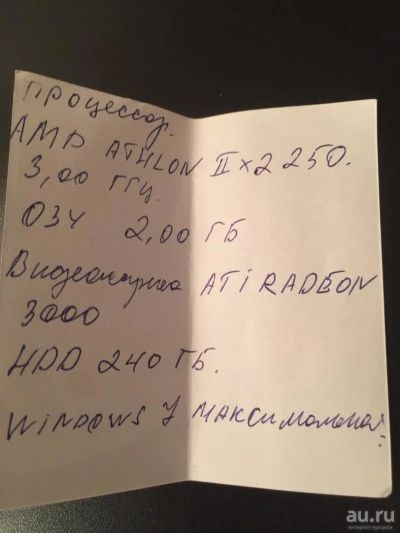 Процессор.
AMD ATHLON II x2 250.
3,00 ГГц.
ОЗУ 2,00 ГБ
Видеокарта ATi RADEON
3000
HDD 240 ГБ.
WiNDOWS 7 МАКСимальная.
au.ru
интернет-аукцион